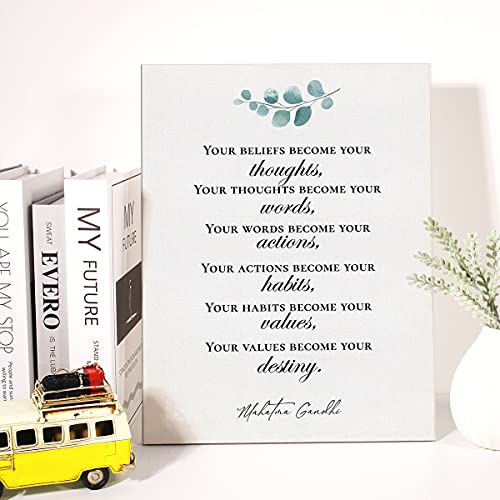 YOUR BELIEFS BECOME YOUR
thoughts,
YOUR THOUGHTS BECOME YOUR
words,
YOUR WORDS BECOME YOUR
actions,
YOUR ACTIONS BECOME YOUR
habits,
YOUR HABITS BECOME YOUR
values,
YOUR VALUES BECOME YOUR
destiny.
Mahatma Gandhi
YOU ARE MY STOP
People and sun
willing to was
SWEAT
EVERO
MY FUTURE
STAND